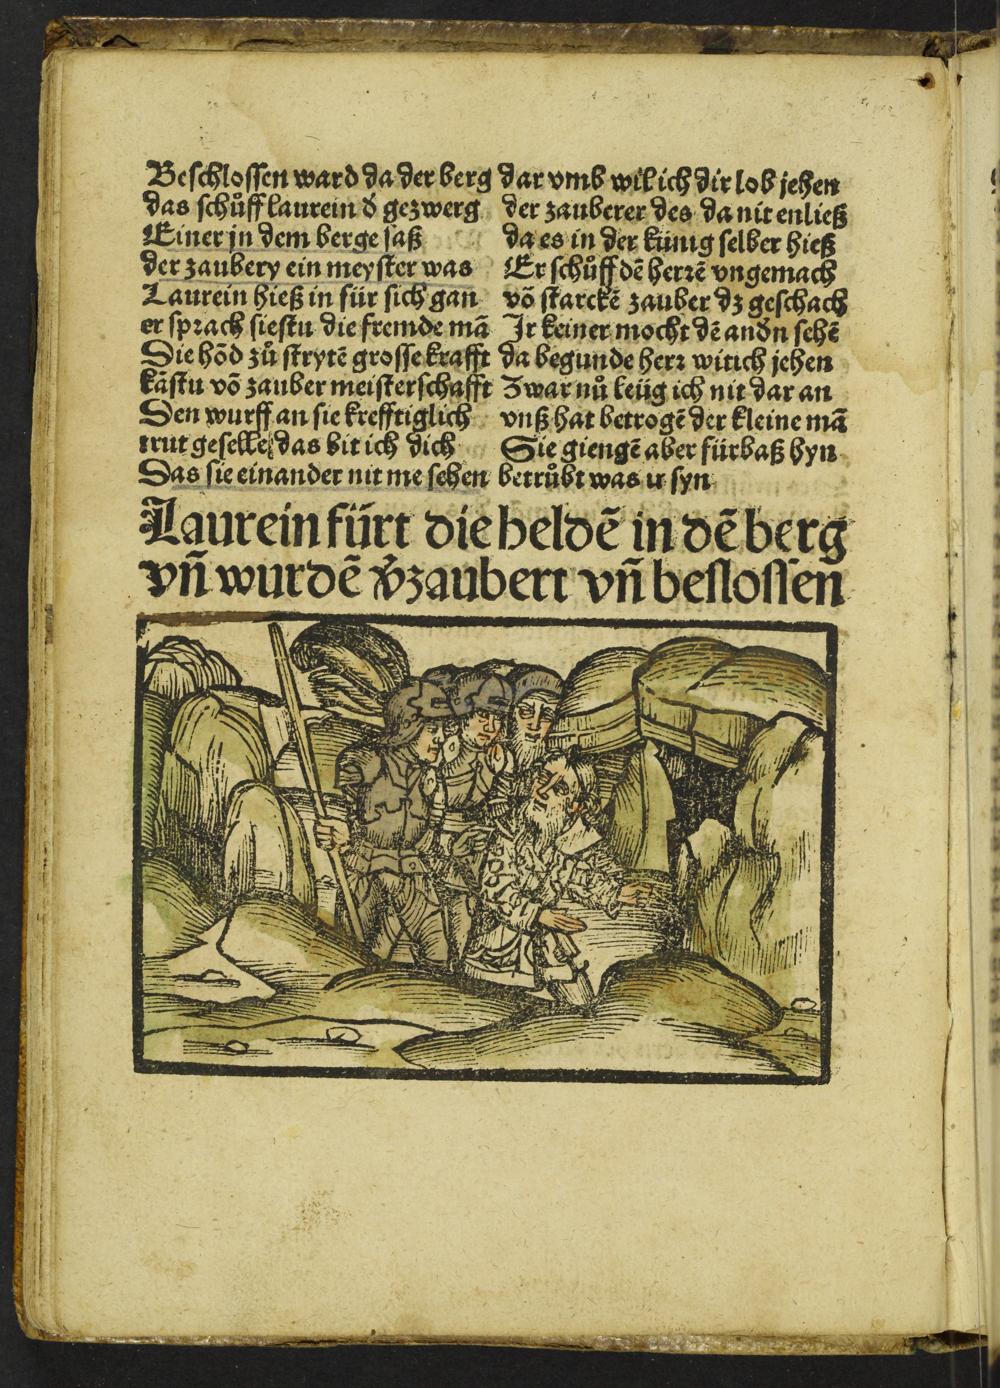 Beschlossen ward da der berg
das schůff laurein d̕ gezwerg
Einer jn dem berge saß
der zaubery ein meyster was
Laurein hieß in für sich gan
er sprach siestu die fremde mā
Die hōd zů strytē grosse krafft
kāstu vō zauber meisterschafft
Den wurff an sie krefftiglich
trut geselle das bit ich dich
Das sie einander nit me sehen
dar vmb wil ich dir lob jehen
der zauberer des da nit enließ
da es in der künig selber hieß
Er schůff dē herrē vngemach
vō starckē zauber dz geschach
Jr keiner mocht dē andn̄ sehē
da begunde herr witich jehen
Zwar nů leüg ich nit dar an
vnß hat betrogē der kleine mā
Sie giengē aber fürbaß hyn
betrůbt was ir syn
Laurein fürt die heldē in dē berg
vn̄ wurdē v̄zaubert vn̄ beslossen